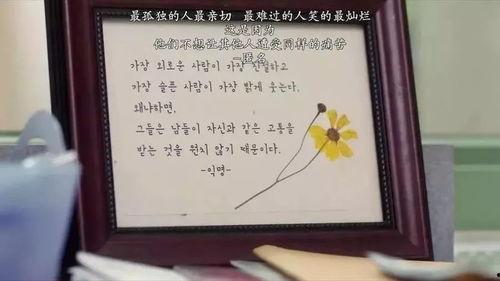 最孤独的人最亲切　最难过的人笑的最灿烂
这是因为
他们不想让其他人遭受同样的痛苦
-匿名
가장 외로운 사람이 가장 친절하고
가장 슬픈 사람이 가장 밝게 웃는다.
왜냐하면,
그들은 남들이 자신과 같은 고통을
받는 것을 원치 않기 때문이다.
-익명-